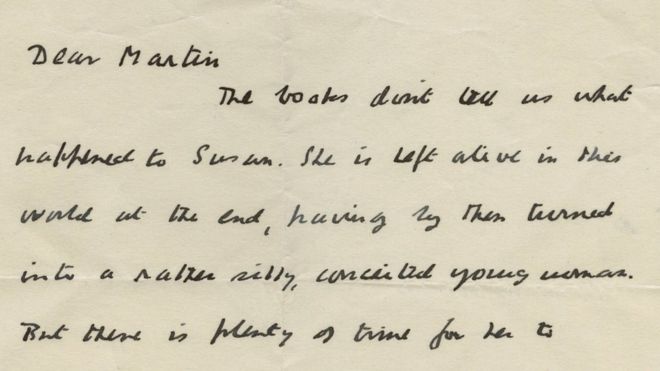 Dear Martin
The books don't tell us what
happened to Susan. She is left alive in this
world at the end, having by then turned
into a rather silly, conceited young woman.
But there is plenty of time for her to